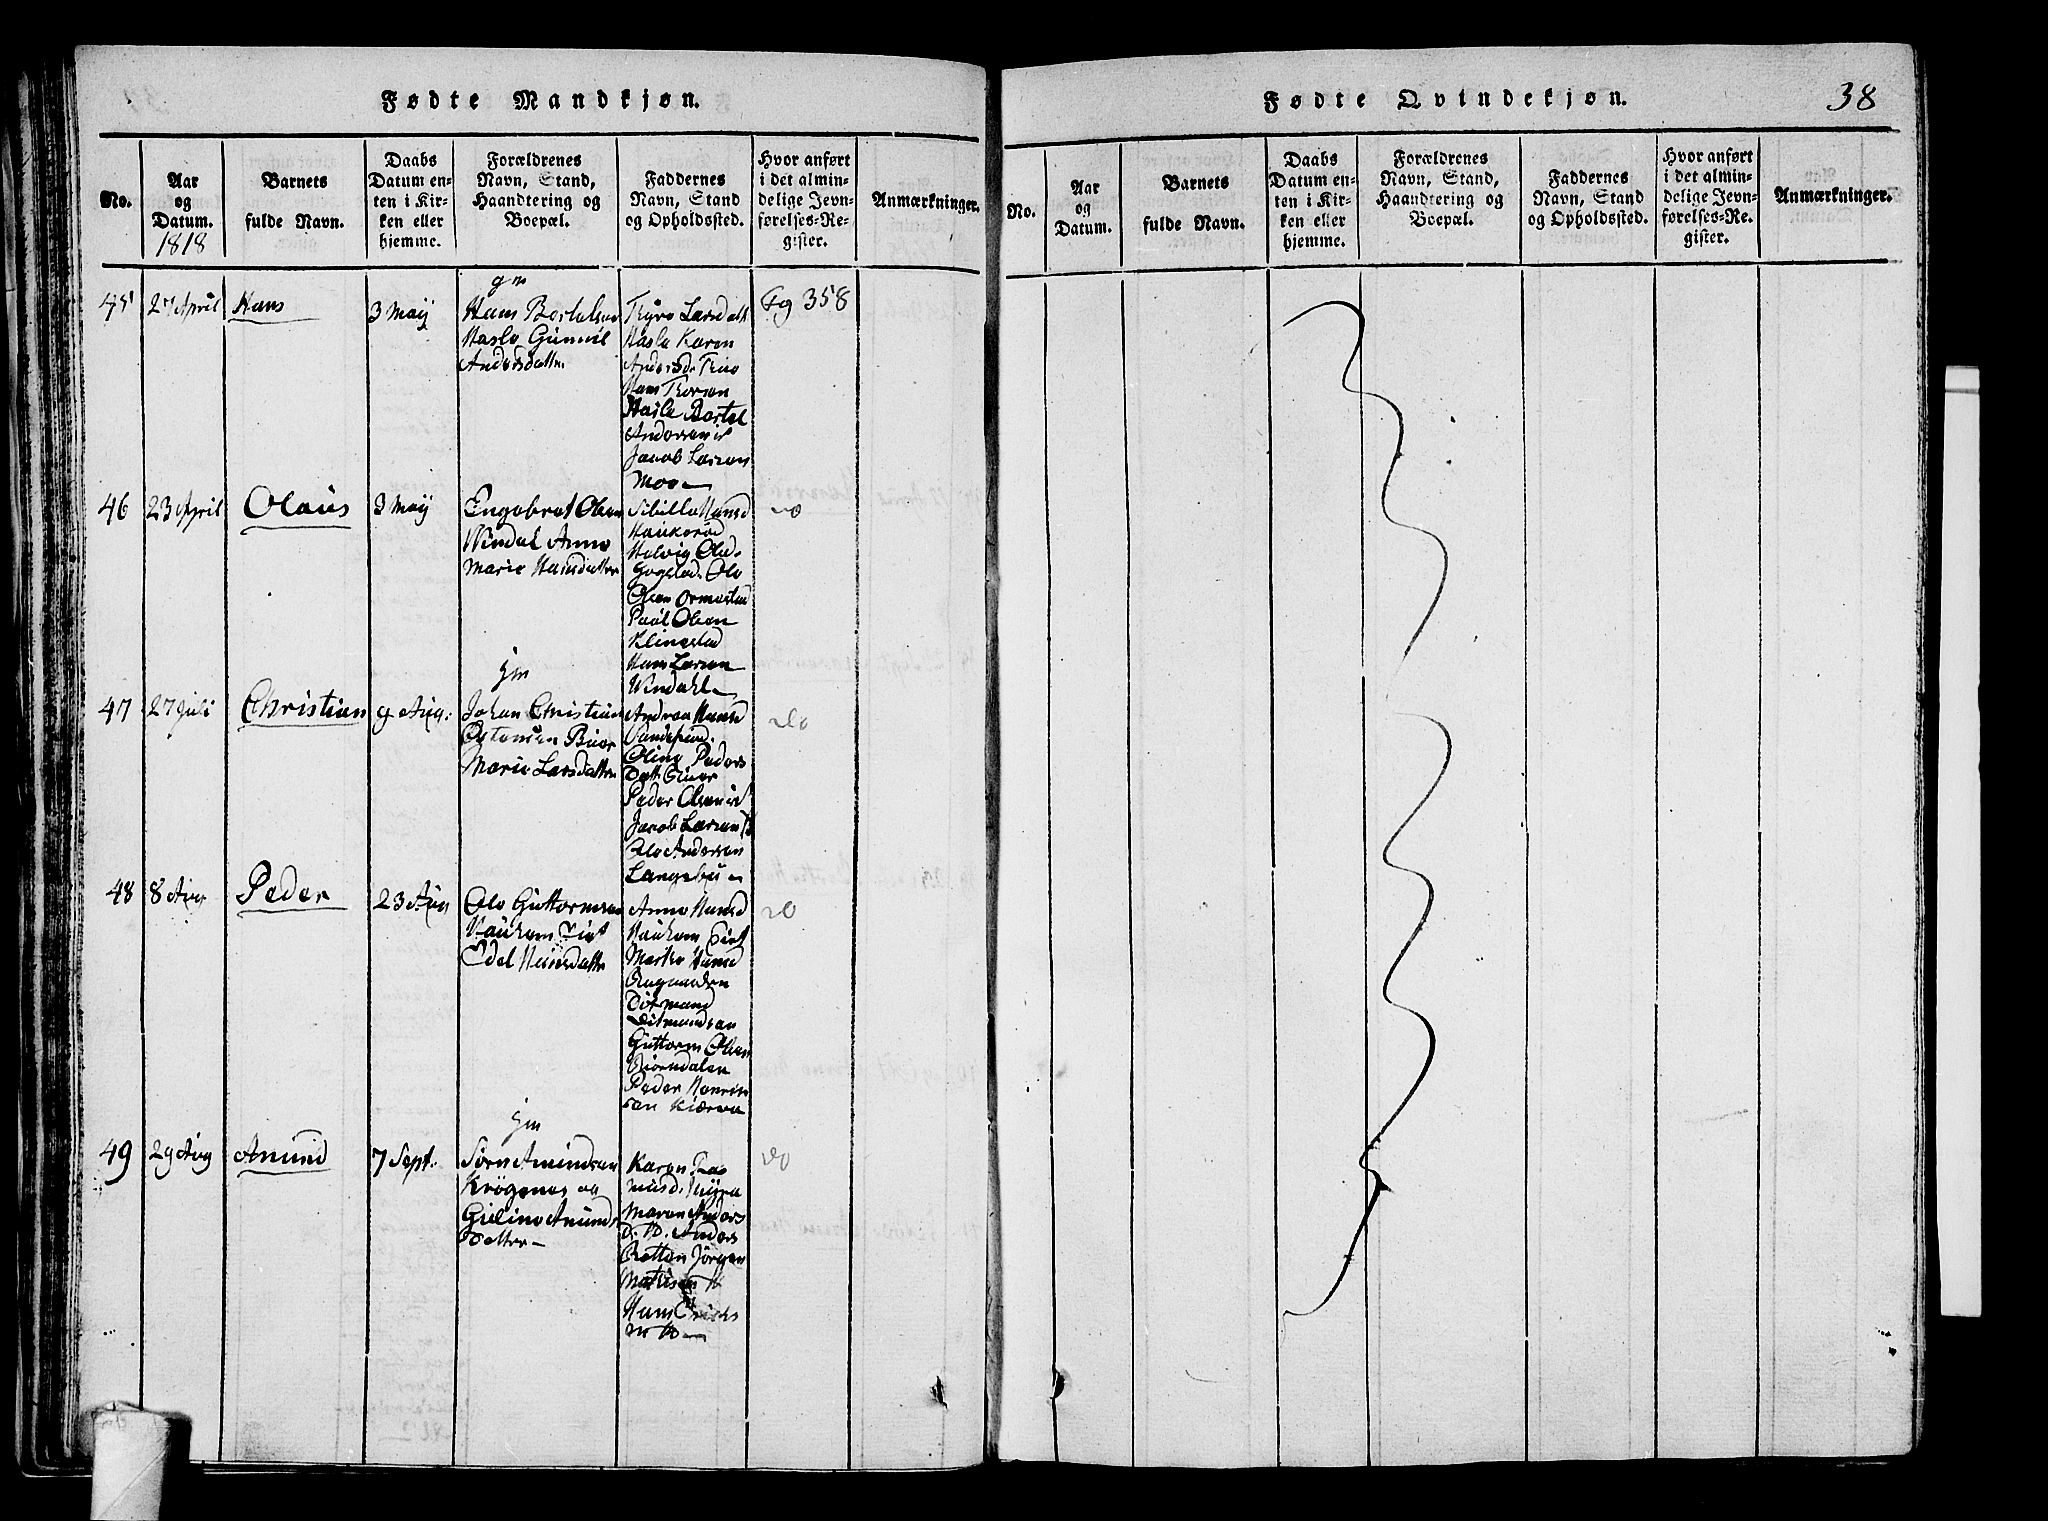 Fødte Mandkjøn.
No.
Aar
og
Datum.
1818
Barnets
fulde Navn.
Daabs
Datum en-
ten i Kir-
ken eller
hjemme.
Forældrenes
Navn, Stand,
Haandtering og
Boepæl.
Faddernes
Navn, Stand
og Opholdssted.
Hvor anført
i det almin-
delige Jevn-
førelses-Re-
gister.
Anmærkninger.
45
27 April
Hans
3 May
gm
Hans Bertelsen
Hasle Gunnil
Andersdatter
Hasle Karen
Hans Thorsen
Hasle Bertel
Anderssen
Jacob Larsen
Moe
Fg 358
46
23 April
Olaus
3 May
Engebret Olsen
Windal Anne
Marie Hansdatter
Sibille Hansd
Haukerød
Helvig Olsd.
Gogstad. Ole
Olsen Ormestad
Paul Olsen
Klinestad
Hans Larsen
Windahl
do
47
27 Juli
Christian
9 Aug.
gm
Johan Christian
Ostensen Buer
Marie Larsdatter
Andrea Hansd
Sandefiord.
Oline Peders
Datt. Buer
Peder Olsen
Jacob Larsen
Ole Andersen
Langebu
do
48
8 Aug
Peder
23 Aug
Ole Guttormsen
Haukom
Edel Hansdatter
Anne Hansd
Haukom
Marthe Hansd
Aagaarden
Ditmand
Ditmandsen
Guttorm Olsen
Biørndalen
Peder Henrik
sen Kiærra
do
49
29 Aug
Amund
7 Sept.
gm
Sørn Amundsen
Krøgenes og
Guline Amunds
Datter
Karen Ras
musd.
Maren Anders
D. ib. Anders
Jørgen
Matisen ib
Hans
do
Fødte Qvindekjøn.
38
No.
Aar
og
Datum.
Barnets
fulde Navn.
Daabs
Datum en-
ten i Kir-
ken eller
hjemme.
Forældrenes
Navn, Stand,
Haandtering og
Boepæl.
Faddernes
Navn, Stand
og Opholdssted.
Hvor anført
i det almin-
delige Jevn-
førelses-Re-
gister.
Anmærkninger.